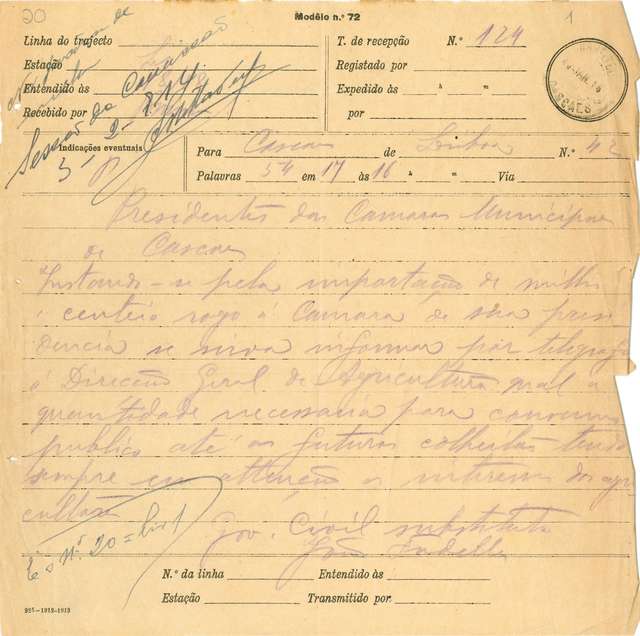 20
Modêlo n.º 72
1
Linha do trajecto
Estação
Entendido às
Recebido por
Sessão da Comissão
2-
T. de recepção N.º 124
Registado por
Expedido às h m
por
CASCAES
Indicações eventuais
Para Cascaes de Lisboa N.º 42
Palavras 54 em 17 às 16 h m Via
Presidentes das Camaras Municipaes
de Cascaes
Instando-se pela importação de milho
e centeio rogo á Camara de sua presi
dencia se mova informar por telegrafo
á Direcção Geral de Agricultura qual a
quantidade necessaria para consumo
publico até as futuras colheitas tendo
sempre em attenção os interesses dos agri
cultores
Gov. Civil substituto
João
É o N.º 20 = Liv 1
N.º da linha Entendido às
Estação Transmitido por
925-1912-1913